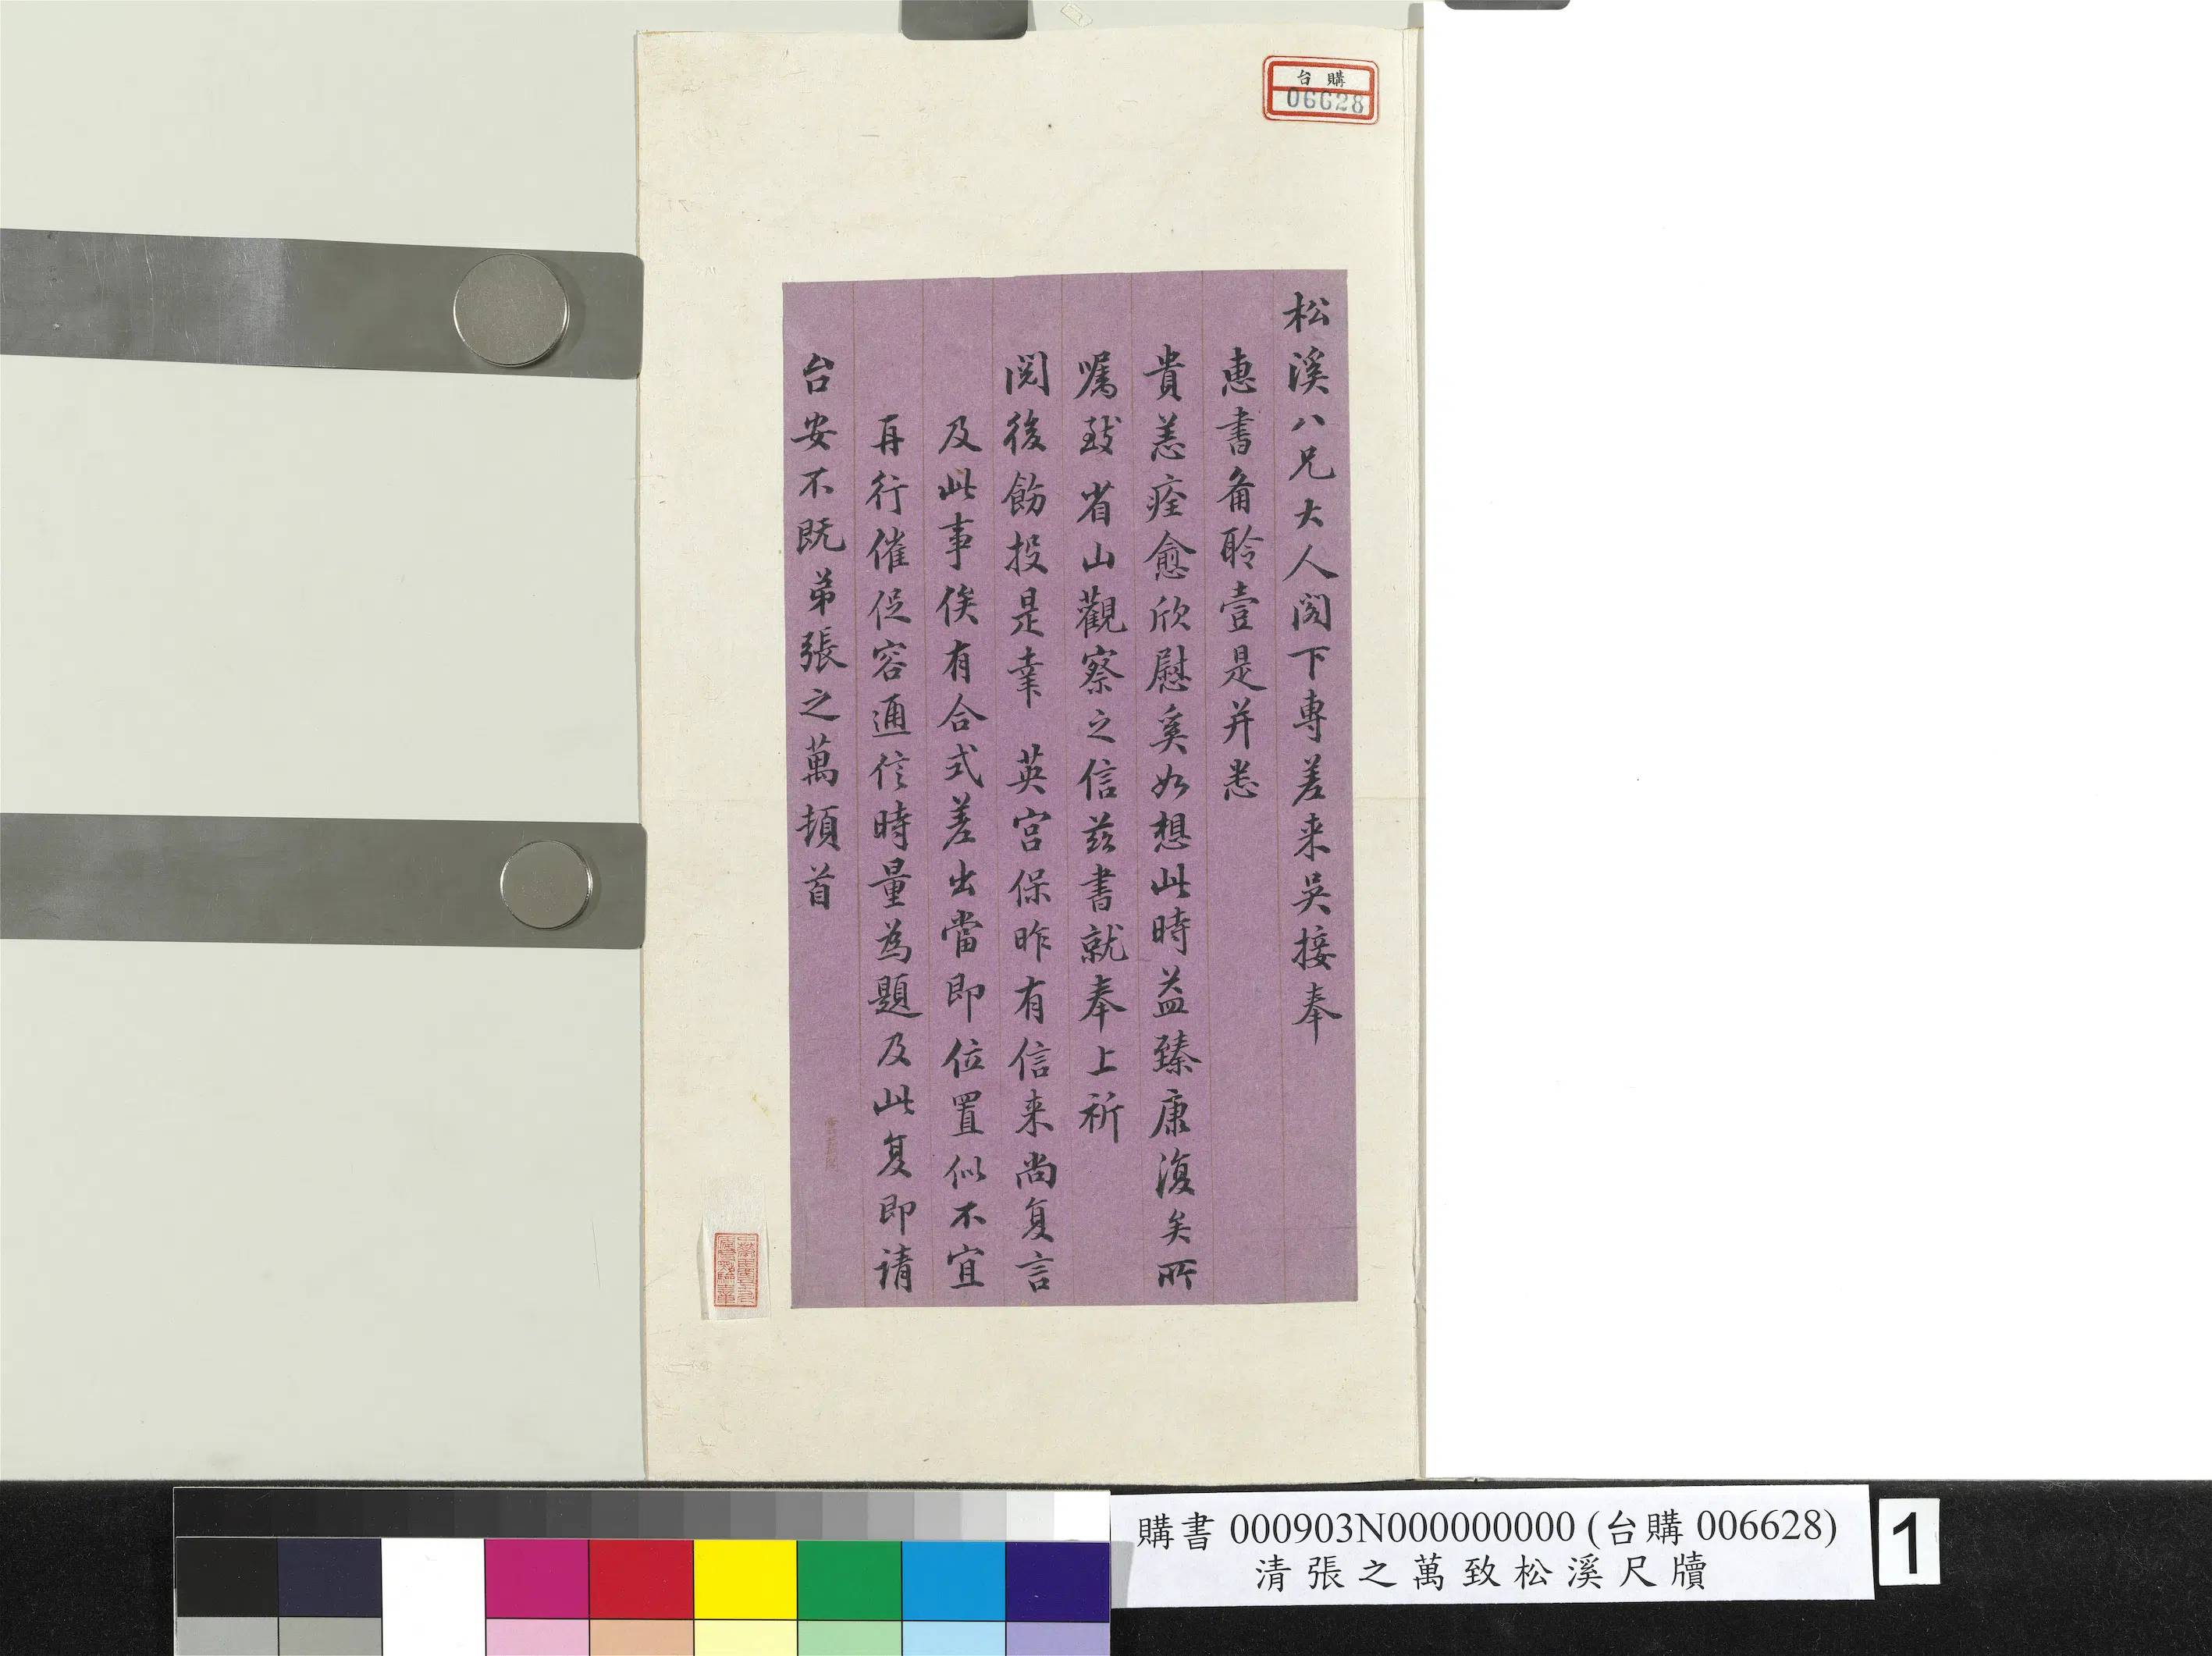 台購
06628
松溪八兄大人閣下專差来吳接奉
惠書备聆壹是并悉
貴恙痊愈欣慰奚如想此時益臻康復矣所
囑致省山觀察之信茲書就奉上祈
閱後飭投是幸 英宮保昨有信来尚复言
及此事俟有合式差出當即位置似不宜
再行催促容通信時量為題及此复即请
台安不既弟張之萬頓首
購書 000903N000000000 (台購 006628)
清張之萬致松溪尺牘
1